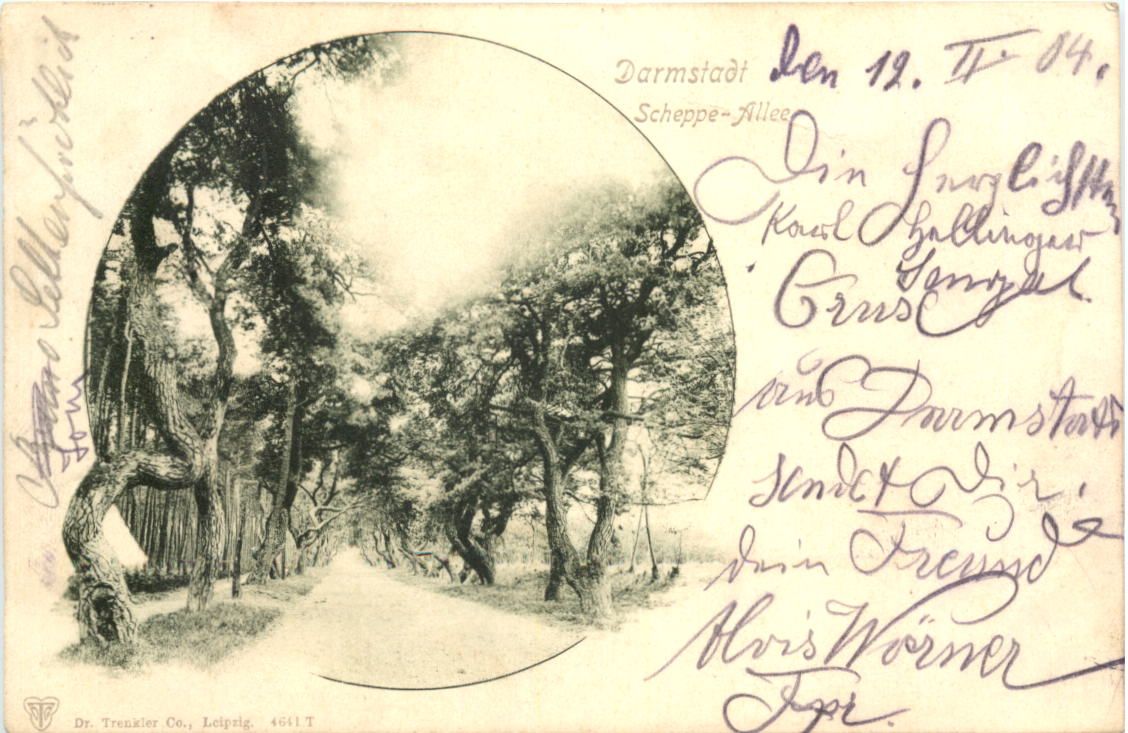 Darmstadt
Scheppe-Allee
den 12. II. 04.
Die herzlichsten
Karl Hellinger
Gruss
aus Darmstadt
sendet Dir,
dein Freund
Alois Wörner
Dr. Trenkler Co., Leipzig. 4641 T